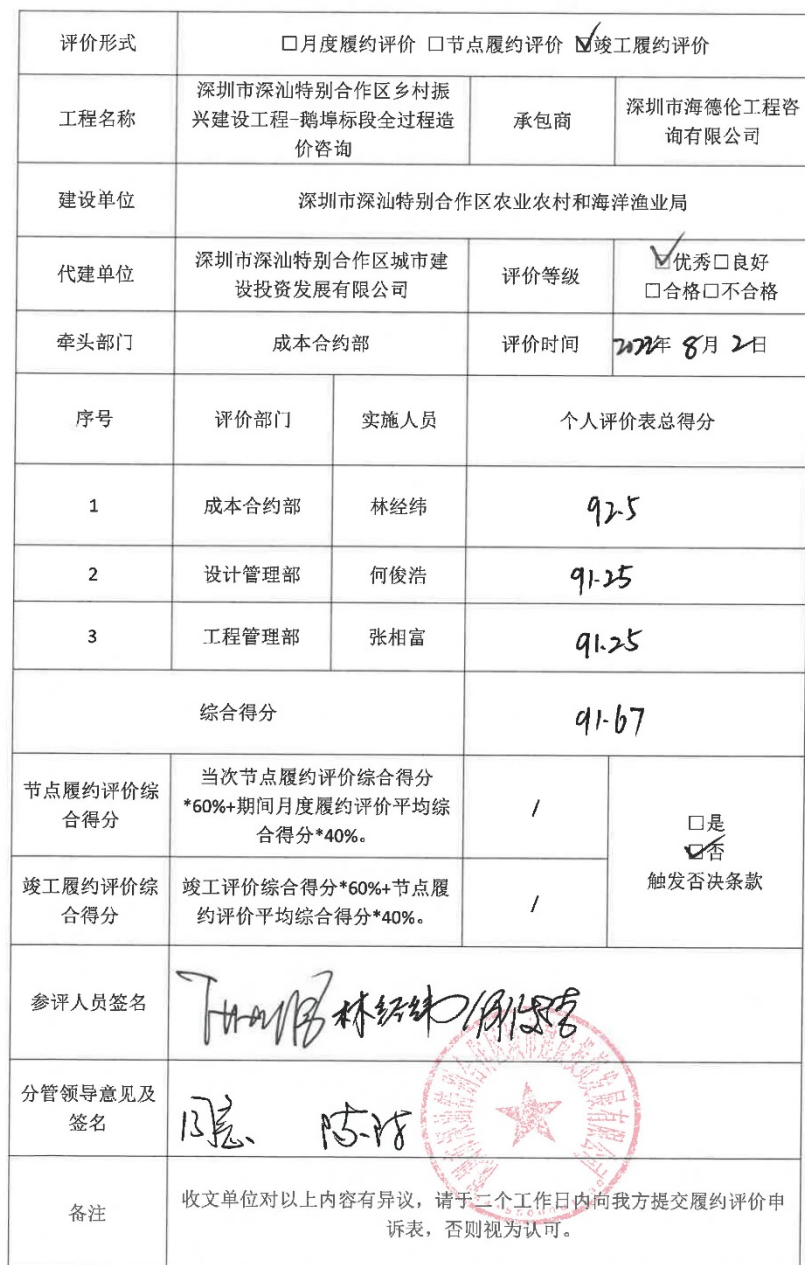 评价形式
□月度履约评价 □节点履约评价 ☑竣工履约评价
工程名称
深圳市深汕特别合作区乡村振
兴建设工程-鹅埠标段全过程造
价咨询
承包商
深圳市海德伦工程咨
询有限公司
建设单位
深圳市深汕特别合作区农业农村和海洋渔业局
代建单位
深圳市深汕特别合作区城市建
设投资发展有限公司
评价等级
☑优秀□良好
□合格□不合格
牵头部门
成本合约部
评价时间
2022年 8月 2日
序号
评价部门
实施人员
个人评价表总得分
1
成本合约部
林经纬
92.5
2
设计管理部
何俊浩
91.25
3
工程管理部
张相富
91.25
综合得分
91.67
节点履约评价综
合得分
当次节点履约评价综合得分
*60%+期间月度履约评价平均综
合得分*40%。
/
□是
☑否
触发否决条款
竣工履约评价综
合得分
竣工评价综合得分*60%+节点履
约评价平均综合得分*40%。
/
参评人员签名
林经纬
分管领导意见及
签名
同意
备注
收文单位对以上内容有异议，请于三个工作日内向我方提交履约评价申
诉表，否则视为认可。